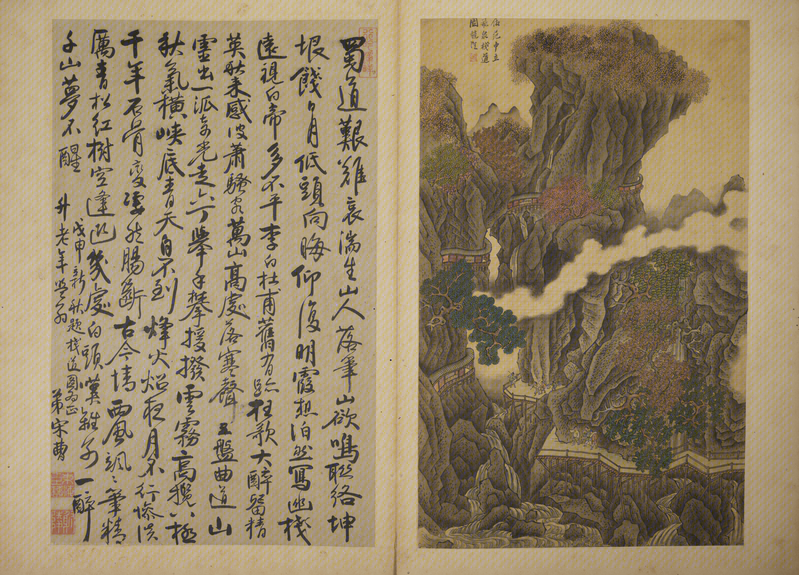 蜀道艱難哀湍生山人落筆山欲鳴聯絡坤
垠餞日月低頭向晦仰復明霞想泊然寫幽棧
遠視白帝多不平李白杜甫舊有跡狂歌大醉留精
英秋來感激蕭騷客萬山高處落寒聲五盤曲道山
靈出一派奇光走六丁舉手攀援撥雲霧高攬八極
秋氣橫峽底青天自不到烽火焰夜月不行慘淡
千年石骨變淒然腸斷古今情西風颯々筆精
厲青松紅樹空逢迎幾處白頭嘆難為一醉
千山夢不醒
戊申新秋題棧道圖為
升老年翁正
弟宋曹
仙范中立
圖